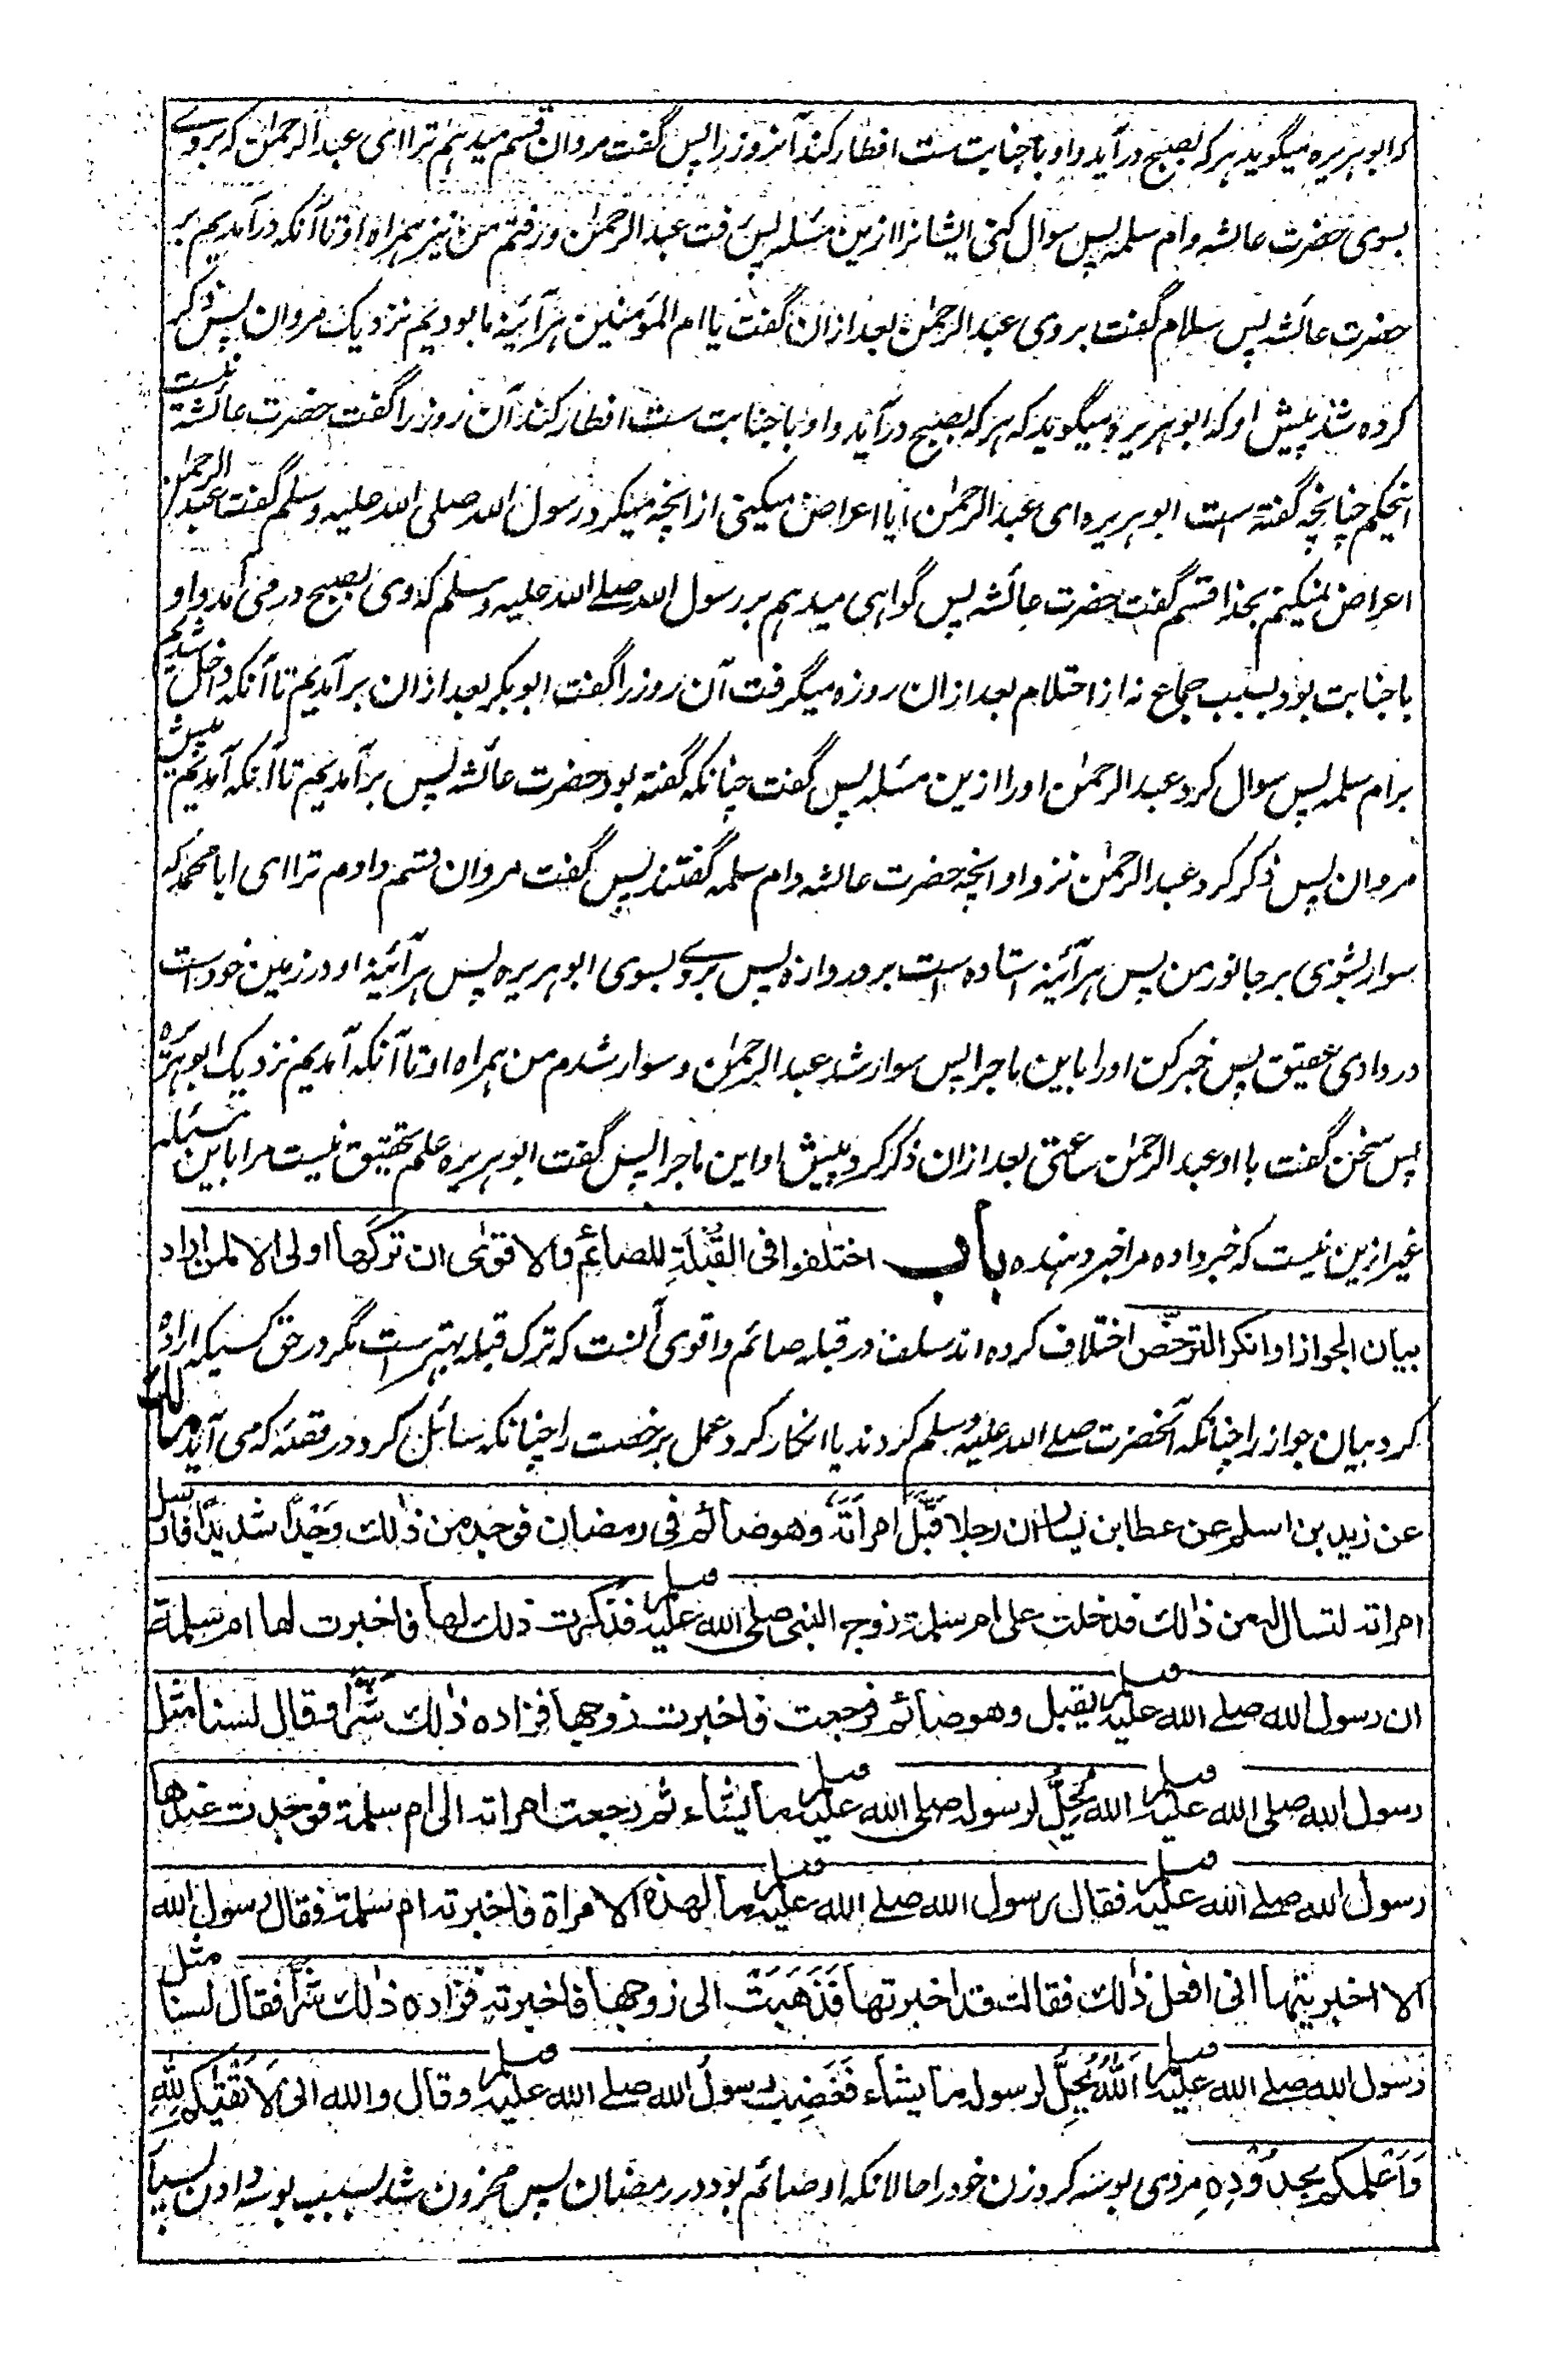 که ابو هریره میگوید هر که بصبح درآید و او با جنابت ست افطار کند آنروز را پس گفت مروان قسم میدهم ترا ای عبد الرحمن که بروے
بسوی حضرت عائشه و ام سلمه پس سوال کنی ایشانرا ازین مسئله پس رفت عبد الرحمٰن و رفتم من نیز همراه او تا آنکه درآمدیم بر
حضرت عائشه پس سلام گفت بر وی عبد الرحمٰن بعد ازان گفت یا ام المؤمنین هر آئینه ما بودیم نزدیک مروان پس ذکر
کرده شد پیش او که ابو هریره میگوید که هر که بصبح درآید و او با جنابت ست افطار کند آن روز را گفت حضرت عائشة نیست
اینحکم چنانچه گفته است ابو هریره ای عبد الرحمٰن ایا اعراض میکنی از انچه میکرد رسول الله صلی الله علیه وسلم گفت عبد الرحمٰن
اعراض نمیکنم بخدا قسم گفت حضرت عائشه پس گواهی میدهم بر رسول الله صلے الله علیه وسلم که وی بصبح در می آمد و او
با جنابت بود بسبب جماع نه از احتلام بعد ازان روزه میگرفت آن روز را گفت ابو بکر بعد ازان برآمدیم تا آنکه داخل شدیم
بر ام سلمه پس سوال کرد عبد الرحمٰن او را ازین مسئله پس گفت چنانکه گفته بود حضرت عائشه پس برآمدیم تا آنکه آمدیم پیش
مروان پس ذکر کرد عبد الرحمٰن نزد او انچه حضرت عائشه و ام سلمه گفتند پس گفت مروان قسم دادم ترا ای ابا محمد که
سوار بشوی بر جانور من پس هر آئینه استاده است بر دروازه پس بروے بسوی ابو هریره پس هر آئینه او در زمین خود است
در وادی عقیق پس خبر کن او را باین ماجرا پس سوار شد عبد الرحمٰن و سوار شدم من همراه او تا آنکه آمدیم نزدیک ابو هریره
پس سخن گفت با او عبد الرحمٰن ساعتی بعد ازان ذکر کرد پیش او این ماجرا پس گفت ابو هریره علم تحقیق نیست مرا باین مسئله
غیر ازین نیست که خبر داده مرا خبر دهنده باب اختلفوا فی القُبْلَةِ للصائم والاقوٰی ان ترکها اولی الا لمن اراد
بیان الجواز او انکر الترخّص اختلاف کرده اند سلف در قبله صائم و اقوی آنست که ترک قبله بهتر است مگر در حق کسیکه اراده
کرد بیان جواز را چنانکه آنحضرت صلے الله علیه وسلم کردند یا انکار کرد عمل بر رخصت را چنانکه سائل کرد در قصّه که می آید مالک
عن زید بن اسلم عن عطا بن یسار ان رجلا قَبَّلَ امرأتَهٗ وهو صائم فی رمضان فوجد من ذٰلک وَجْدًا شدیدًا فارسل
امراته لتسال له عن ذٰلک فدخلت علی ام سلمة زوج النبی صلی الله علیه وسلم فذکرت ذلک لها فاخبرت لها ام سلمة
ان رسول الله صلے الله علیه وسلم یقبل وهو صائم فرجعت فاخبرت زوجها فزاده ذٰلک شَرًّا وقال لسنا مثل
رسول الله صلی الله علیه وسلم الله یُحِلُّ لرسوله صلی الله علیه وسلم ما یشاء ثم رجعت امراته الی ام سلمة فوجدت عندها
رسول الله صلے الله علیه وسلم فقال رسول الله صلے الله علیه وسلم ما لهذه الامراة فاخبرته ام سلمة فقال رسول الله
الا اخبرتیها انی افعل ذٰلک فقالت قد اخبرتها فَذَهَبَتْ الی زوجها فاخبرته فزاده ذٰلک شرًّا فقال لسنا مثل
رسول الله صلے الله علیه وسلم اَللّٰهُ یُحِلُّ لرسوله ما یشاء فَغَضِبَ رسول الله صلے الله علیه وسلم وقال والله انی لَاَتْقٰىکم لِلّٰهِ
وَاَعْلمکم بحدُوْدِهٖ مردی بوسه کرد زن خود را حالانکه او صائم بود در رمضان پس محزون شد بسبب بوسه دادن بسیار